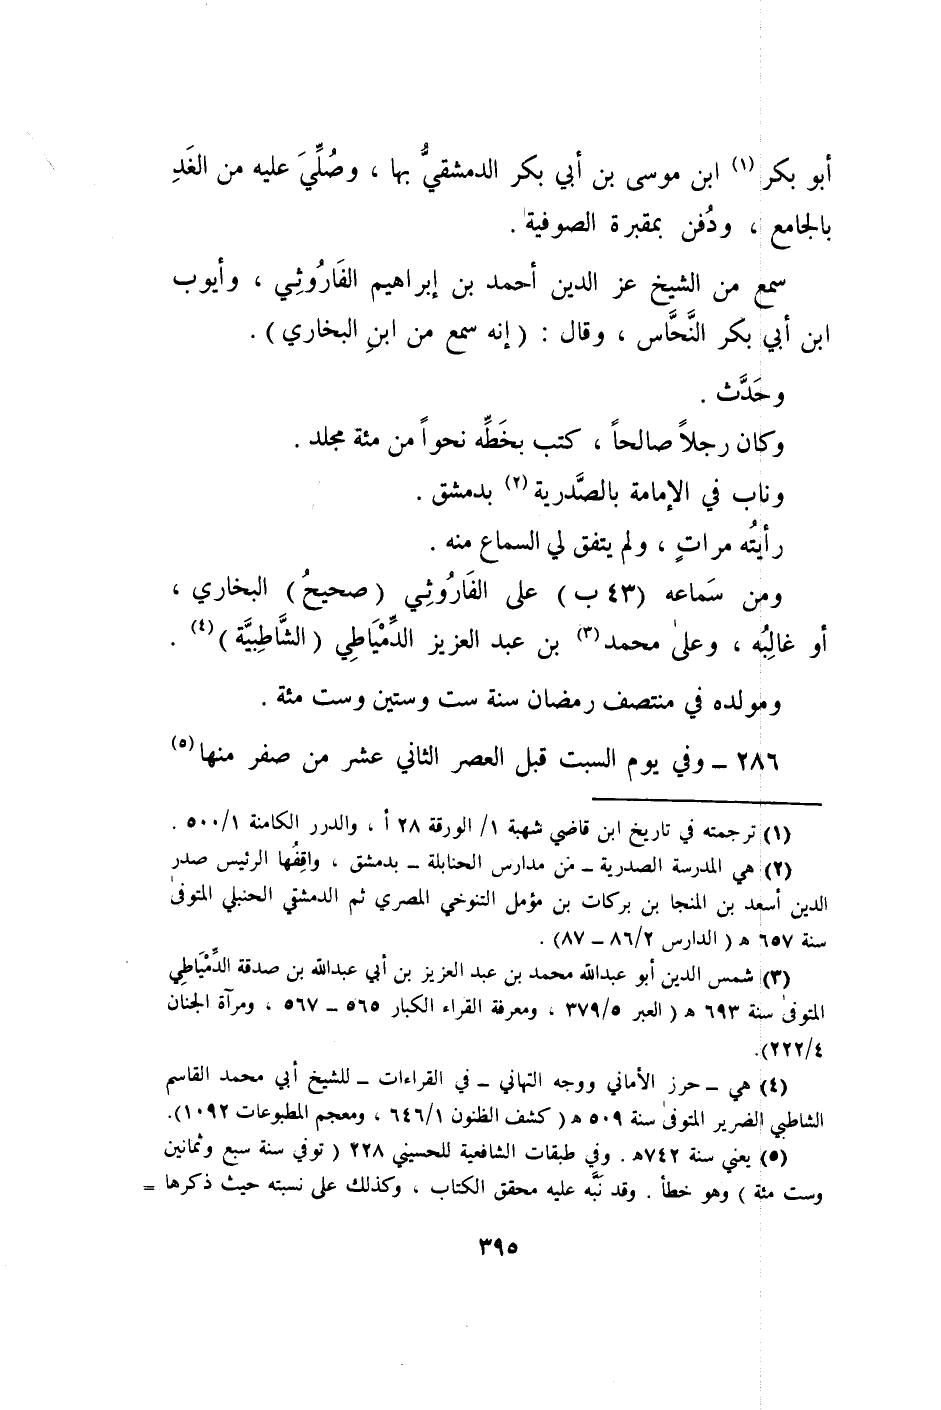 أبو بكر (١) ابن موسى بن أبي بكر الدمشقيُّ بها ، وصُلِّيَ عليه من الغَدِ
بالجامع ، ودُفن بمقبرة الصوفية .
سمع من الشيخ عز الدين أحمد بن إبراهيم الفَارُوثِي ، وأيوب
ابن أبي بكر النَّحَّاس ، وقال : ( إنه سمع من ابنِ البخاري ) .
وحَدَّث .
وكان رجلاً صالحاً ، كتب بخَطِّه نحواً من مئة مجلد .
وناب في الإمامة بالصَّدرية (٢) بدمشق .
رأيتُه مراتٍ ، ولم يتفق لي السماع منه .
ومن سَماعه (٤٣ ب ) على الفَارُوثِي ( صحيحُ ) البخاري ،
أو غالِبُه ، وعلى محمد (٣) بن عبد العزيز الدِّمْيَاطِي ( الشَّاطِبِيَّة ) (٤) .
ومولده في منتصف رمضان سنة ست وستين وست مئة .
٢٨٦ – وفي يوم السبت قبل العصر الثاني عشر من صفر منها (٥)
(١) ترجمته في تاريخ ابن قاضي شهبة ١/ الورقة ٢٨ أ ، والدرر الكامنة ١/٥٠٠ .
(٢) هي المدرسة الصدرية – من مدارس الحنابلة – بدمشق ، واقِفُها الرئيس صدر
الدين أسعد بن المنجا بن بركات بن مؤمل التنوخي المصري ثم الدمشقي الحنبلي المتوفى
سنة ٦٥٧ ه ( الدارس ٢/٨٦ – ٨٧) .
(٣) شمس الدين أبو عبدالله محمد بن عبد العزيز بن أبي عبدالله بن صدقة الدِّمْيَاطِي
المتوفى سنة ٦٩٣ ه ( العبر ٥/٣٧٩ ، ومعرفة القراء الكبار ٥٦٥ – ٥٦٧ ، ومرآة الجنان
٤/٢٢٢).
(٤) هي – حرز الأماني ووجه التهاني – في القراءات – للشيخ أبي محمد القاسم
الشاطبي الضرير المتوفى سنة ٥٠٩ ه ( كشف الظنون ١/٦٤٦ ، ومعجم المطبوعات ١٠٩٢).
(٥) يعني سنة ٧٤٢ه . وفي طبقات الشافعية للحسيني ٢٢٨ ( توفي سنة سبع وثمانين
وست مئة ) وهو خطأ . وقد نَبَّه عليه محقق الكتاب ، وكذلك على نسبته حيث ذكرها =
٣٩٥